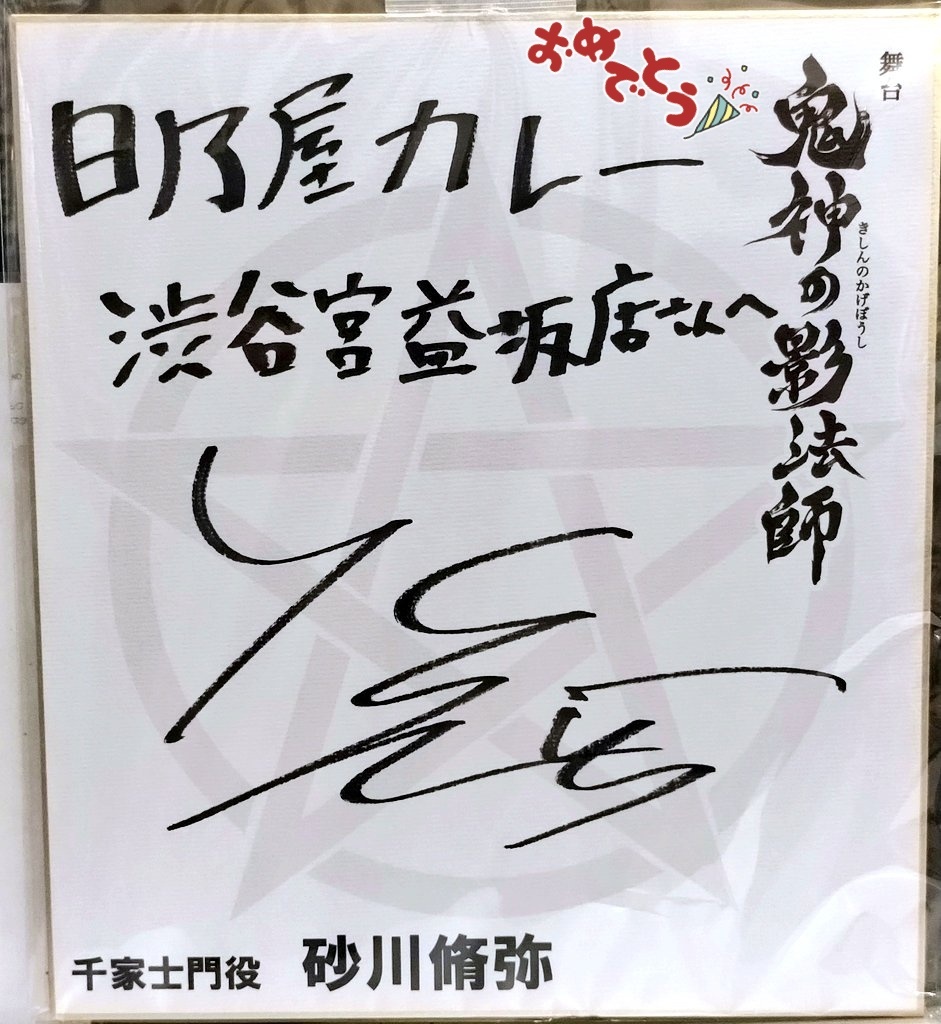 おめでとう
舞台
鬼神の影法師
きしんのかげぼうし
日乃屋カレー
渋谷宮益坂店さんへ
千家士門役 砂川脩弥